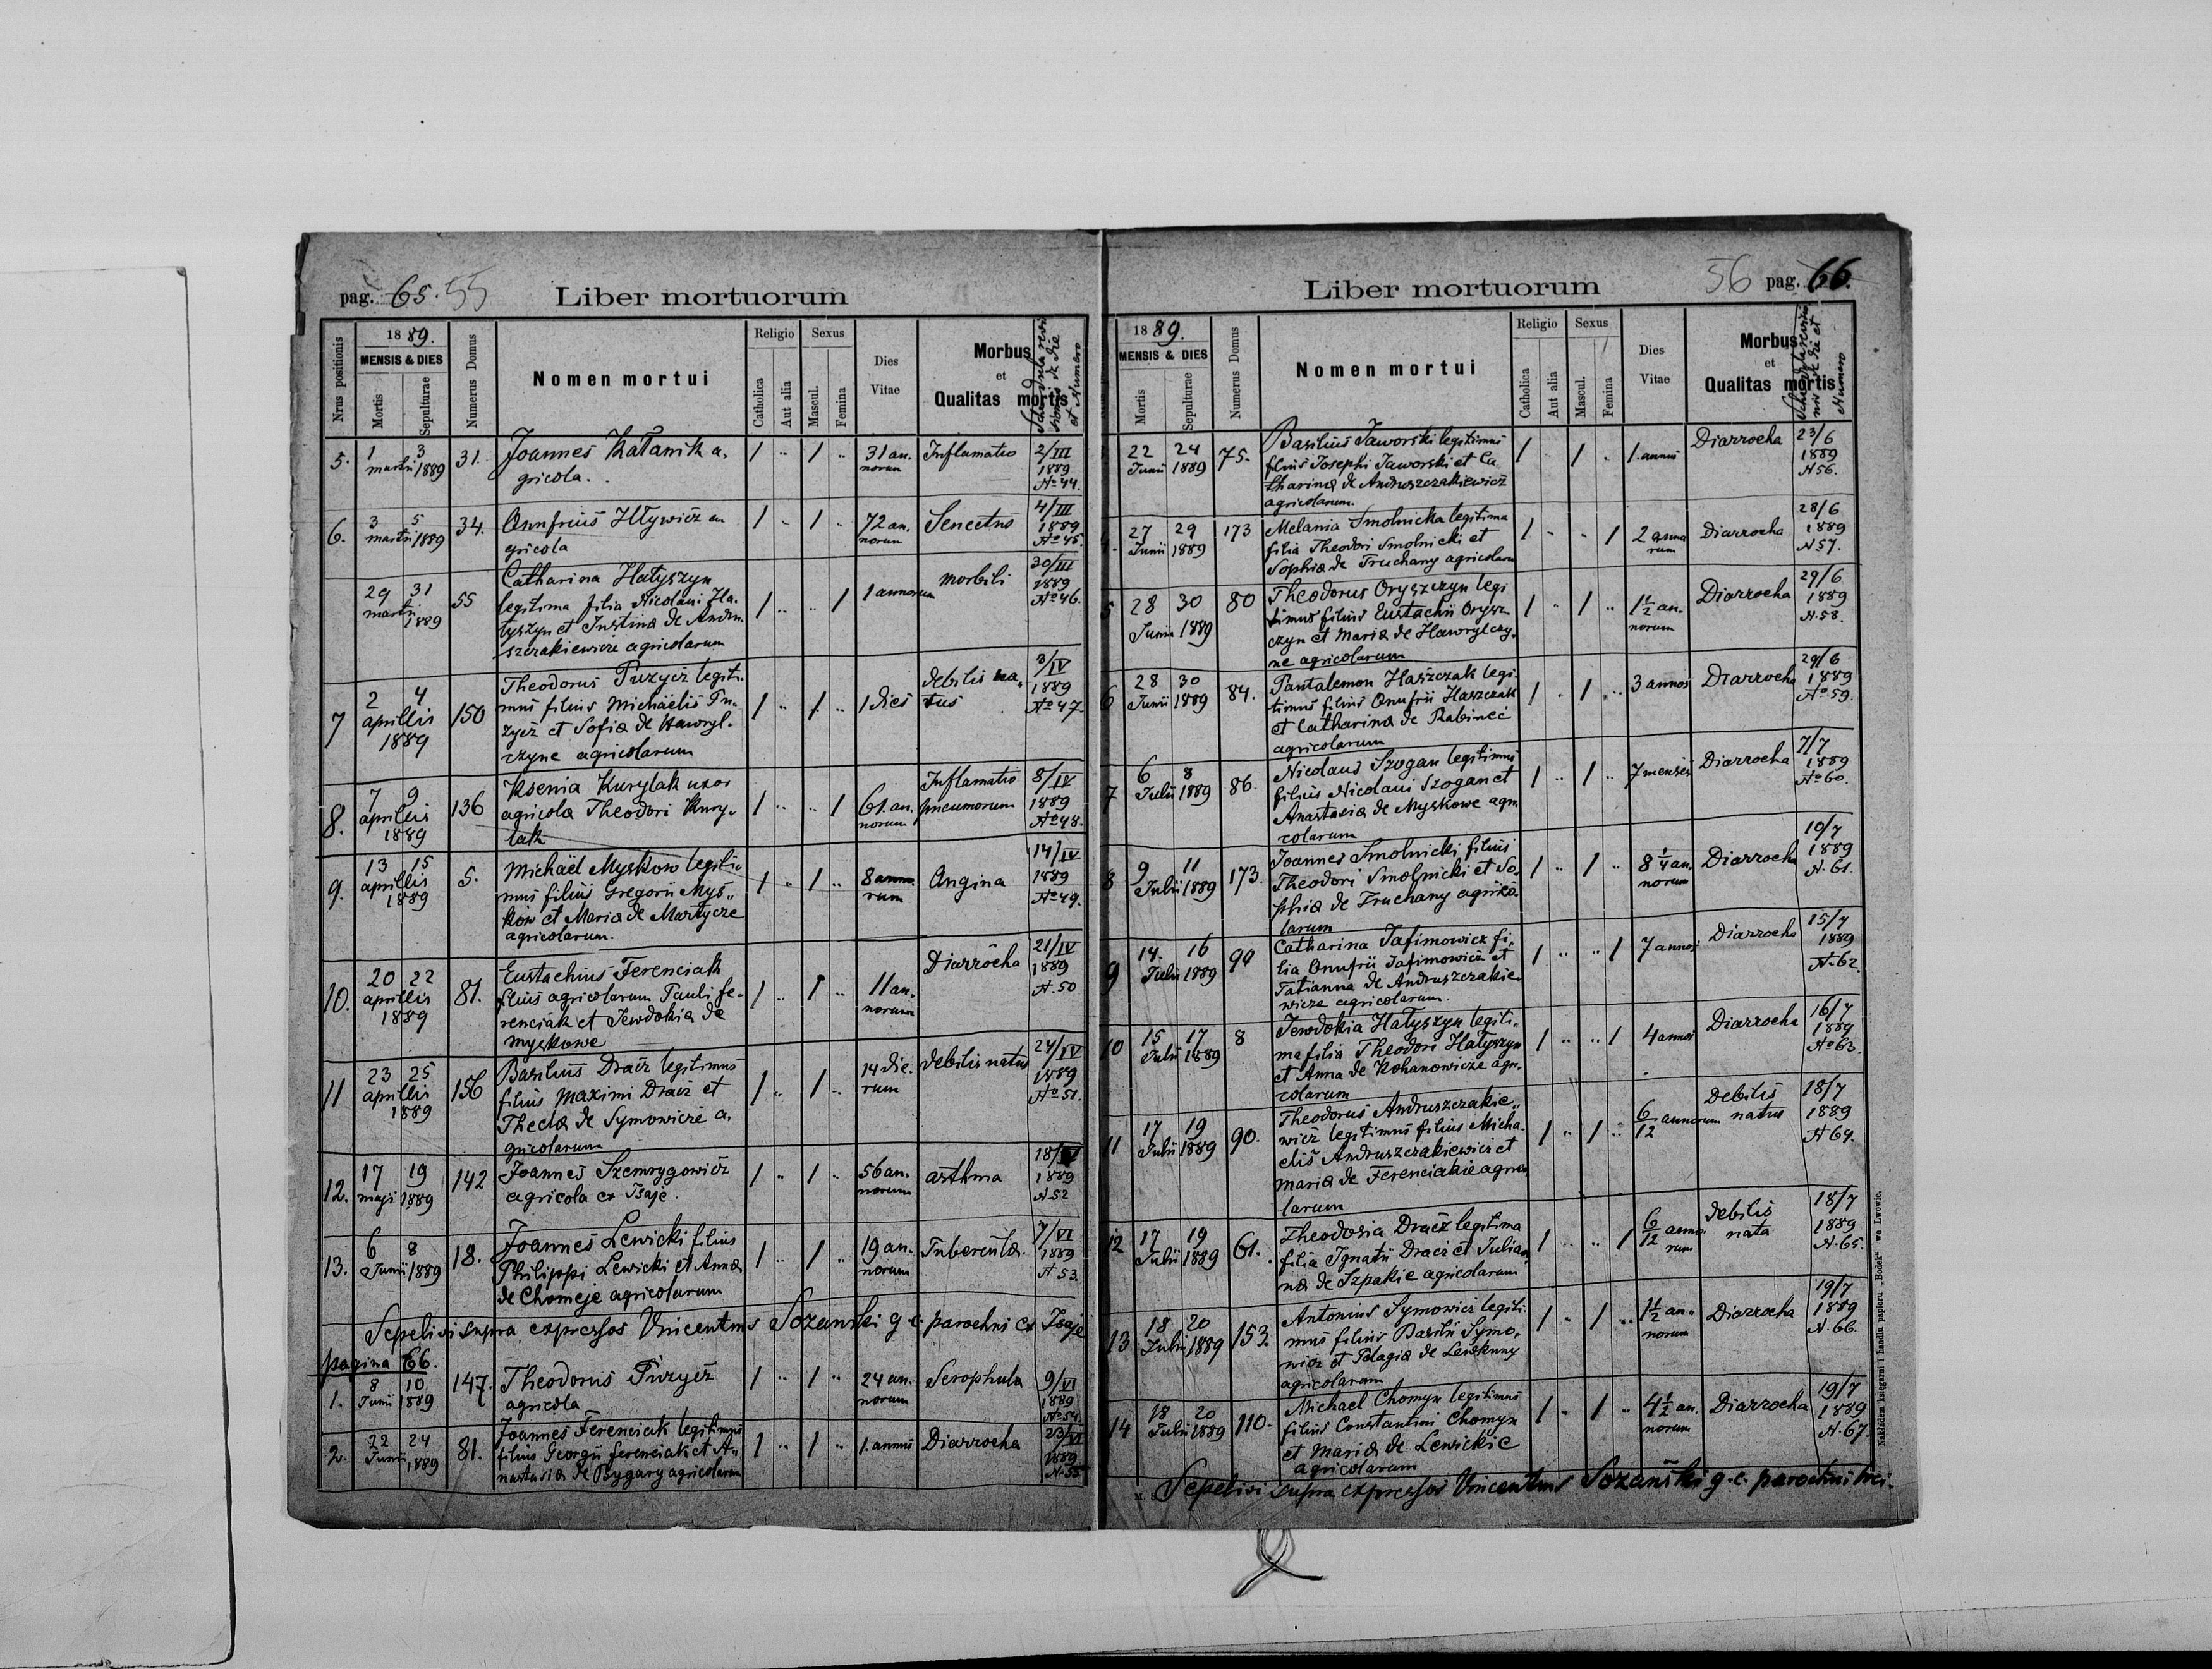 pag. 65. 55
Liber mortuorum
Nrus positionis
1889.
MENSIS & DIES
Mortis
Sepulturae
Numerus Domus
Nomen mortui
Religio
Catholica
Aut alia
Sexus
Mascul.
Femina
Dies
Vitae
Morbus
et
Qualitas mortis
5. 1 3 martii 1889 31. Joannes Kałanik a. 1 " 1 " 31 an. Inflamatio 2/III
gricola. norum 1889
Nº 44.
6. 3 5 martii 1889 34. Onufrius Hływicz a 1 " 1 " 72 an. Senectus 4/III
gricola norum 1889
Nº 45.
29 31 martii 1889 55 Catharina Hałyszyn 1 " " 1 1 annorum morbili 30/III
legitima filia Nicolai Ha. 1889
łyszyn et Justina de Andru. Nº 46.
szczakiewicze agricolarum
7 2 4 aprillis 1889 150 Theodorus Puzycz legiti. 1 " 1 " 1 dies debilis na. 3/IV
mus filius Michäelis Pu. tus 1889
zycz et Sofia de Hawryl. Nº 47.
czyne agricolarum
8. 7 9 aprillis 1889 136 Ksenia Kurylak uxor 1 " " 1 61. an. Inflamatio 8/IV
agricola Theodori Kury. norum pneumorum 1889
lak Nº 48.
9. 13 15 aprillis 1889 5. Michaël Myskow legiti. 1 " 1 " 8 anno. Angina 14/IV
mus filius Gregorii Mys. rum 1889
kow et Maria de Martycze Nº 49.
agricolarum.
10. 20 22 aprillis 1889 81. Eustachius Ferenciak 1 " 1 " 11 an. Diarrocha 21/IV
filius agricolarum Pauli Fe. norum 1889
renciak et Jewdokia de N. 50
myskowe
11 23 25 aprillis 1889 156 Basilius Dracz legitimus 1 " 1 " 14 die. debilis natus 24/IV
filius Maximi Dracz et rum 1889
Thecla de Symowicze a. Nº 51.
gricolarum
12. 17 19 maji 1889 142 Joannes Szemrygowicz 1 " 1 " 56 an. asthma 18/
agricola ex Isaje. norum 1889
N. 52
13. 6 8 Junii 1889 18. Joannes Lewicki filius 1 " 1 " 19 an. Tubercula. 7/VI
Philippi Lewicki et Anna norum 1889
de Chomeje agricolarum N. 53.
Sepelivi supra expressos Vincentius Sozanski g c parochus ex Isaje
pagina 66.
1. 8 10 Junii 1889 147. Theodorus Puzycz 1 " 1 " 24 an. Scrophula 9/VI
agricola norum 1889
Nº 54.
2. 22 24 Junii 1889 81. Joannes Ferenciak legitimus 1 " 1 " 1. annus Diarrocha 23/VI
filius Georgii Ferenciak et A. 1889
nastasia de Bygary agricolarum N. 55
Liber mortuorum
56 pag. 66.
1889.
MENSIS & DIES
Mortis
Sepulturae
Numerus Domus
Nomen mortui
Religio
Catholica
Aut alia
Sexus
Mascul.
Femina
Dies
Vitae
Morbus
et
Qualitas mortis
22 24 Junii 1889 75. Basilius Jaworski legitimus 1 " 1 " 1. annus Diarrocha 23/6
filius Josephi Jaworski et Ca 1889
tharina de Andruszczakiewicz N 56.
agricolarum.
27 29 Junii 1889 173 Melania Smolnicka legitima 1 " " 1 2 anno Diarrocha 28/6
filia Theodori Smolnicki et rum 1889
Sophia de Truchany agricolarum N 57.
5 28 30 Junii 1889 80 Theodorus Oryszczyn legi 1 " 1 " 1 1/2 an. Diarrocha 29/6
timus filius Eustachii Orysz. norum 1889
czyn et Maria de Hawrylczy. N. 58.
ne agricolarum
6 28 30 Junii 1889 84. Pantalemon Haszczak legi. 1 " 1 " 3 annos Diarrocha 29/6
timus filius Onufrii Haszczak 1889
et Catharina de Rabineć Nº 59.
agricolarum
7 6 8 Julii 1889 86. Nicolaus Szogan legitimus 1 " 1 " 7 menses Diarrocha 7/7
filius Nicolai Szogan et 1889
Anastasia de Myskowe agri. Nº 60.
colarum
8 9 11 Julii 1889 173. Joannes Smolnicki filius 1 " 1 " 8 1/4 an. Diarrocha 10/7
Theodori Smolnicki et So. norum 1889
phia de Truchany agrico. N. 61.
larum
9 14. 16 Julii 1889 90 Catharina Jafimowicz fi. 1 " " 1 7 annos Diarrocha 15/7
lia Onufrii Jafimowicz et 1889
Tatianna de Andruszczakie. N. 62.
wicze agricolarum.
10 15 17 Julii 1889 8 Jewdokia Hałyszyn legiti. 1 " " 1 4 annos Diarrocha 16/7
ma filia Theodori Hałyszyn 1889
et Anna de Kohanowicze agri. Nº 63.
colarum
11 17 19 Julii 1889 90. Theodorus Andruszczakie. 1 " 1 " 6/12 annorum Debilis 18/7
wicz legitimus filius Micha. natus 1889
elis Andruszczakiewicz et N 64.
Maria de Ferenciakie agrico
larum
12 17 19 Julii 1889 61. Theodosia Dracz legitima 1 " " 1 6/12 anno. debilis 18/7
filia Ignatii Dracz et Julian. rum nata 1889
na de Szpakie agricolarum N. 65.
13 18 20 Julii 1889 153. Antonius Symowicz legiti. 1 " 1 " 1 1/2 an. Diarrocha 19/7
mus filius Basilii Symo. norum 1889
wicz et Pelagia de Lewkuny N. 66.
agricolarum
14 18 20 Julii 1889 110. Michael Chomyn legitimus 1 " 1 " 4 1/2 an. Diarrocha 19/7
filius Constantini Chomyn norum 1889
et Maria de Lewickie N. 67.
agricolarum
Sepelivi supra expressos Vincentius Sozański g. c. parochus
Nakładem księgarni i handlu papieru „Bodek“ we Lwowie.